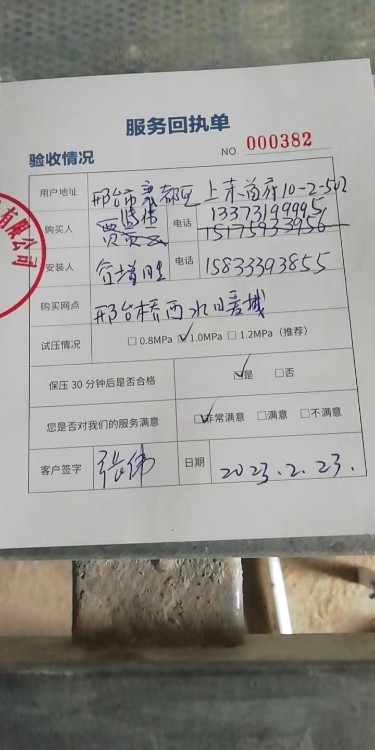 服务回执单
验收情况 NO. 000382
有限公司
用户地址 邢台市襄都区上东首府10-2-502
购买人 张伟 电话 13373199995
贾
安装人 电话 15833393855
购买网点 邢台桥西水暖城
试压情况 □0.8MPa ☑1.0MPa □1.2MPa（推荐）
保压30分钟后是否合格 ☑是 □否
您是否对我们的服务满意 ☑非常满意 □满意 □不满意
客户签字 张伟 日期 2023.2.23.